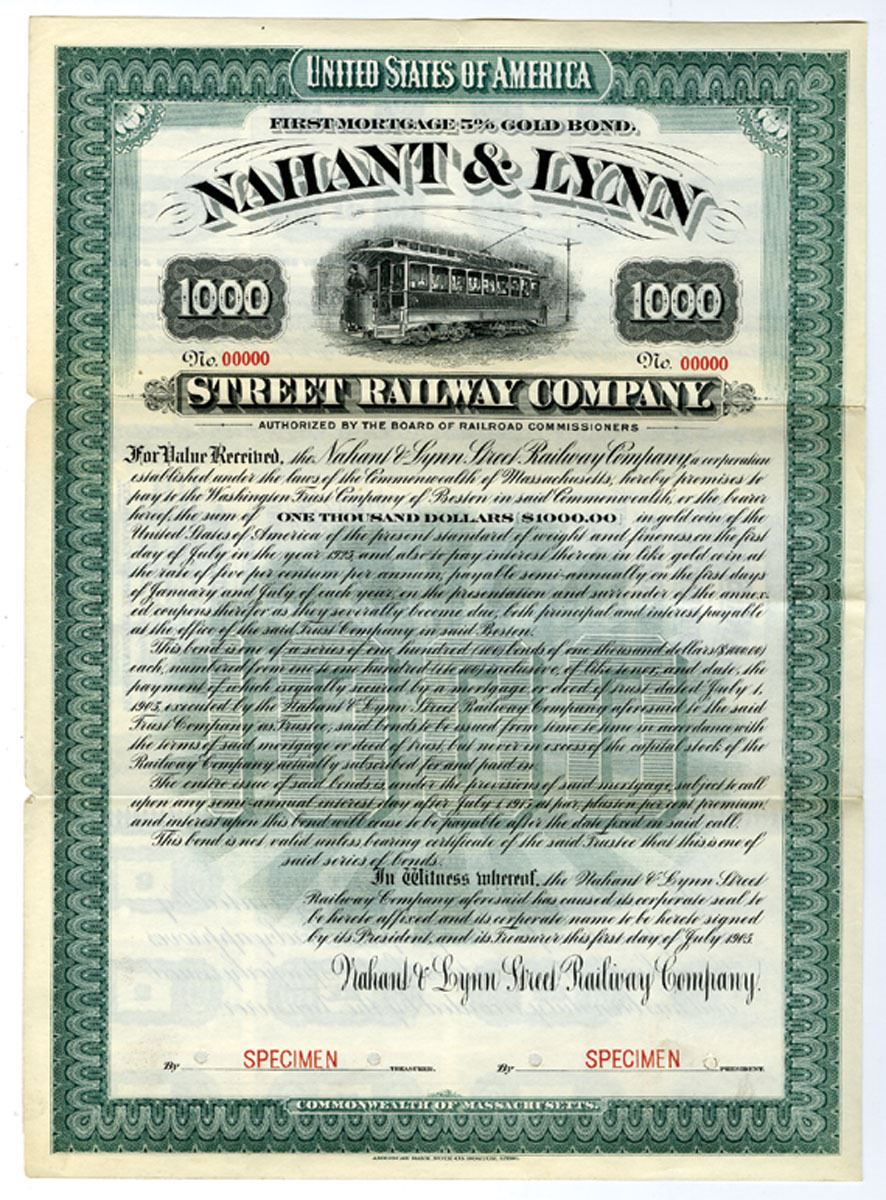 UNITED STATES OF AMERICA
FIRST MORTGAGE 5% GOLD BOND.
NAHANT & LYNN
1000 1000
No. 00000 No. 00000
STREET RAILWAY COMPANY.
AUTHORIZED BY THE BOARD OF RAILROAD COMMISSIONERS
For Value Received, the Nahant & Lynn Street Railway Company, a corporation
established under the laws of the Commonwealth of Massachusetts, hereby promises to
pay to the Washington Trust Company of Boston in said Commonwealth, or the bearer
hereof, the sum of ONE THOUSAND DOLLARS [$1000.00] in gold coin of the
United States of America of the present standard of weight and fineness on the first
day of July in the year 1925, and also to pay interest thereon in like gold coin at
the rate of five per centum per annum, payable semi-annually on the first days
of January and July of each year, on the presentation and surrender of the annex-
ed coupons therefor as they severally become due, both principal and interest payable
at the office of the said Trust Company in said Boston.
This bond is one of a series of one hundred (100) bonds of one thousand dollars ($1000.00)
each, numbered from one to one hundred (1 to 100) inclusive, of like tenor, and date, the
payment of which is equally secured by a mortgage or deed of trust dated July 1,
1905, executed by the Nahant & Lynn Street Railway Company aforesaid to the said
Trust Company as Trustee; said bonds to be issued from time to time in accordance with
the terms of said mortgage or deed of trust, but never in excess of the capital stock of the
Railway Company actually subscribed for and paid in.
The entire issue of said bonds is, under the provisions of said mortgage, subject to call
upon any semi-annual interest day after July 1, 1915 at par, plus ten per cent premium,
and interest upon this bond will cease to be payable after the date fixed in said call.
This bond is not valid unless bearing certificate of the said Trustee that this is one of
said series of bonds.
In Witness whereof, the Nahant & Lynn Street
Railway Company aforesaid has caused its corporate seal to
be hereto affixed and its corporate name to be hereto signed
by its President, and its Treasurer this first day of July 1905.
Nahant & Lynn Street Railway Company.
By SPECIMEN TREASURER. By SPECIMEN PRESIDENT.
COMMONWEALTH OF MASSACHUSETTS.
AMERICAN BANK NOTE CO. BOSTON,